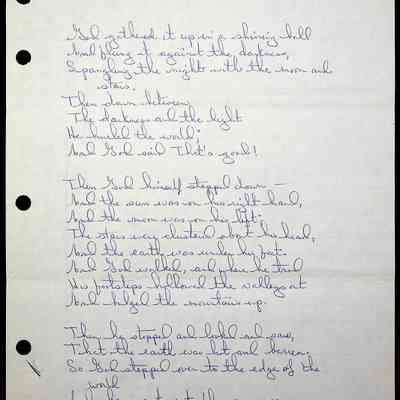 God gathered it up in a shining ball
And flung it against the darkness,
Spangling the night with the moon and
stars.
Then down between
The darkness and the light
He hurled the world;
And God said That's good!
Then God himself stepped down —
And the sun was on his right hand,
And the moon was on his left;
The stars were clustered about his head,
And the earth was under his feet.
And God walked, and where he trod
His footsteps hollowed the valleys out
And bulged the mountains up.
Then he stopped and looked and saw,
That the earth was hot and barren.
So God stepped over to the edge of the
world